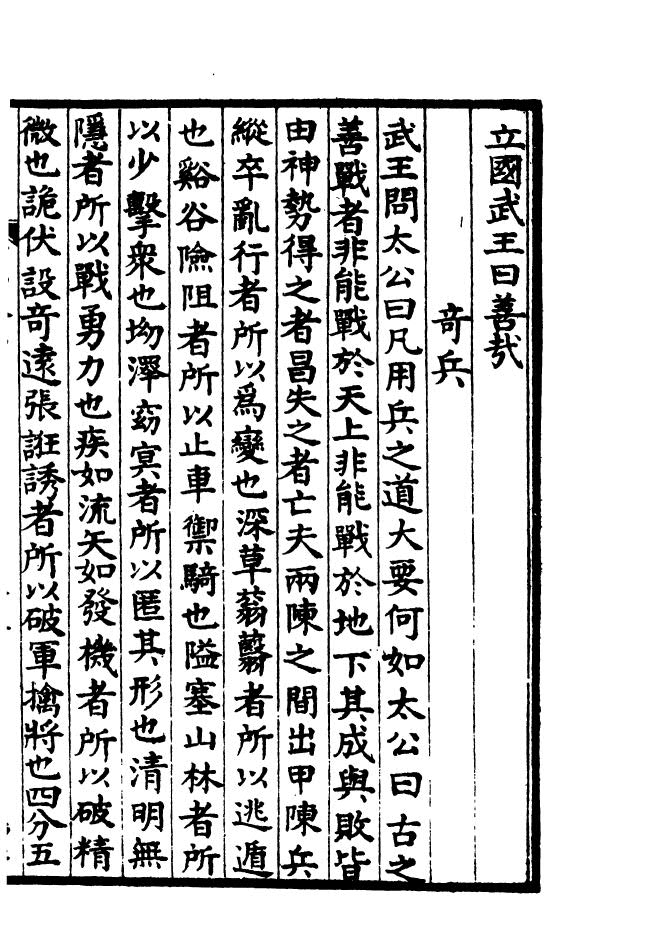 立國武王曰善㢤
奇兵
武王問太公曰凡用兵之道大要何如太公曰古之
善戰者非能戰於天上非能戰於地下其成與敗皆
由神勢得之者昌失之者亡夫兩陳之間出甲陳兵
縱卒亂行者所以為變也深草蓊蘙者所以逃遁
也谿谷險阻者所以止車禦騎也隘塞山林者所
以少擊衆也坳澤窈㝠者所以匿其形也清明無
隱者所以戰勇力也疾如流矢如發機者所以破精
微也詭伏設奇遠張誑誘者所以破軍擒將也四分五